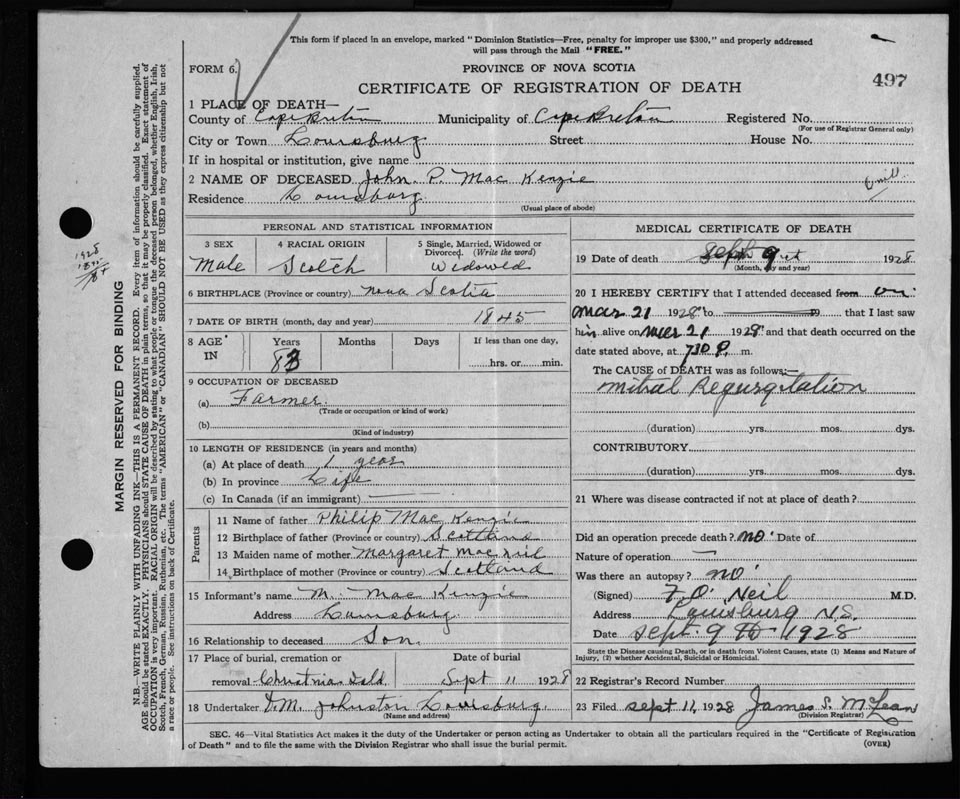 This form if placed in an envelope, marked "Dominion Statistics—Free, penalty for improper use $300," and properly addressed
will pass through the Mail "FREE."
FORM 6.
PROVINCE OF NOVA SCOTIA
497
CERTIFICATE OF REGISTRATION OF DEATH
1 PLACE OF DEATH—
County of Cape Breton Municipality of Cape Breton Registered No.
(For use of Registrar General only)
City or Town Louisburg Street House No.
If in hospital or institution, give name
2 NAME OF DECEASED John P. Mac Kenzie
Residence Louisburg
(Usual place of abode)
PERSONAL AND STATISTICAL INFORMATION
3 SEX 4 RACIAL ORIGIN 5 Single, Married, Widowed or
Divorced. (Write the word)
Male Scotch Widowed
6 BIRTHPLACE (Province or country) Nova Scotia
7 DATE OF BIRTH (month, day and year) 1845
8 AGE IN Years Months Days If less than one day,
83 hrs. or min.
9 OCCUPATION OF DECEASED
(a) Farmer
(Trade or occupation or kind of work)
(b)
(Kind of industry)
10 LENGTH OF RESIDENCE (in years and months)
(a) At place of death 1 year
(b) In province Life
(c) In Canada (if an immigrant)
Parents
11 Name of father Philip Mac Kenzie
12 Birthplace of father (Province or country) Scotland
13 Maiden name of mother Margaret Mac Neil
14 Birthplace of mother (Province or country) Scotland
15 Informant's name M. Mac Kenzie
Address Louisburg
16 Relationship to deceased Son
17 Place of burial, cremation or Date of burial
removal Sept 11 1928
18 Undertaker Johnston Louisburg
(Name and address)
MEDICAL CERTIFICATE OF DEATH
19 Date of death Sept 9 1928
(Month, day and year)
20 I HEREBY CERTIFY that I attended deceased from on
Mar 21 1928 to 19 that I last saw
him alive on Mar 21 1928 and that death occurred on the
date stated above, at 730 P. m.
The CAUSE of DEATH was as follows:—
Mitral Regurgitation
(duration) yrs. mos. dys.
CONTRIBUTORY
(duration) yrs. mos. dys.
21 Where was disease contracted if not at place of death?
Did an operation precede death? no Date of
Nature of operation —
Was there an autopsy? no
(Signed) F. O' Neil M.D.
Address Louisburg N.S.
Date Sept. 9 th 1928
State the Disease causing Death, or in death from Violent Causes, state (1) Means and Nature of
Injury, (2) whether Accidental, Suicidal or Homicidal.
22 Registrar's Record Number
23 Filed Sept 11, 1928 James S. McLean
(Division Registrar)
SEC. 46—Vital Statistics Act makes it the duty of the Undertaker or person acting as Undertaker to obtain all the particulars required in the "Certificate of Registration
of Death" and to file the same with the Division Registrar who shall issue the burial permit.
(OVER)
MARGIN RESERVED FOR BINDING
N.B.—WRITE PLAINLY WITH UNFADING INK—THIS IS A PERMANENT RECORD. Every item of information should be carefully supplied.
AGE should be stated EXACTLY. PHYSICIANS should STATE CAUSE OF DEATH in plain terms, so that it may be properly classified. Exact statement of
OCCUPATION is very important. RACIAL ORIGIN will be described by stating to what people or tongue the deceased person belonged, whether English, Irish,
Scotch, French, German, Russian, Ruthenian, etc. The terms "AMERICAN" or "CANADIAN" SHOULD NOT BE USED as they express citizenship but not
a race or people. See instructions on back of Certificate.